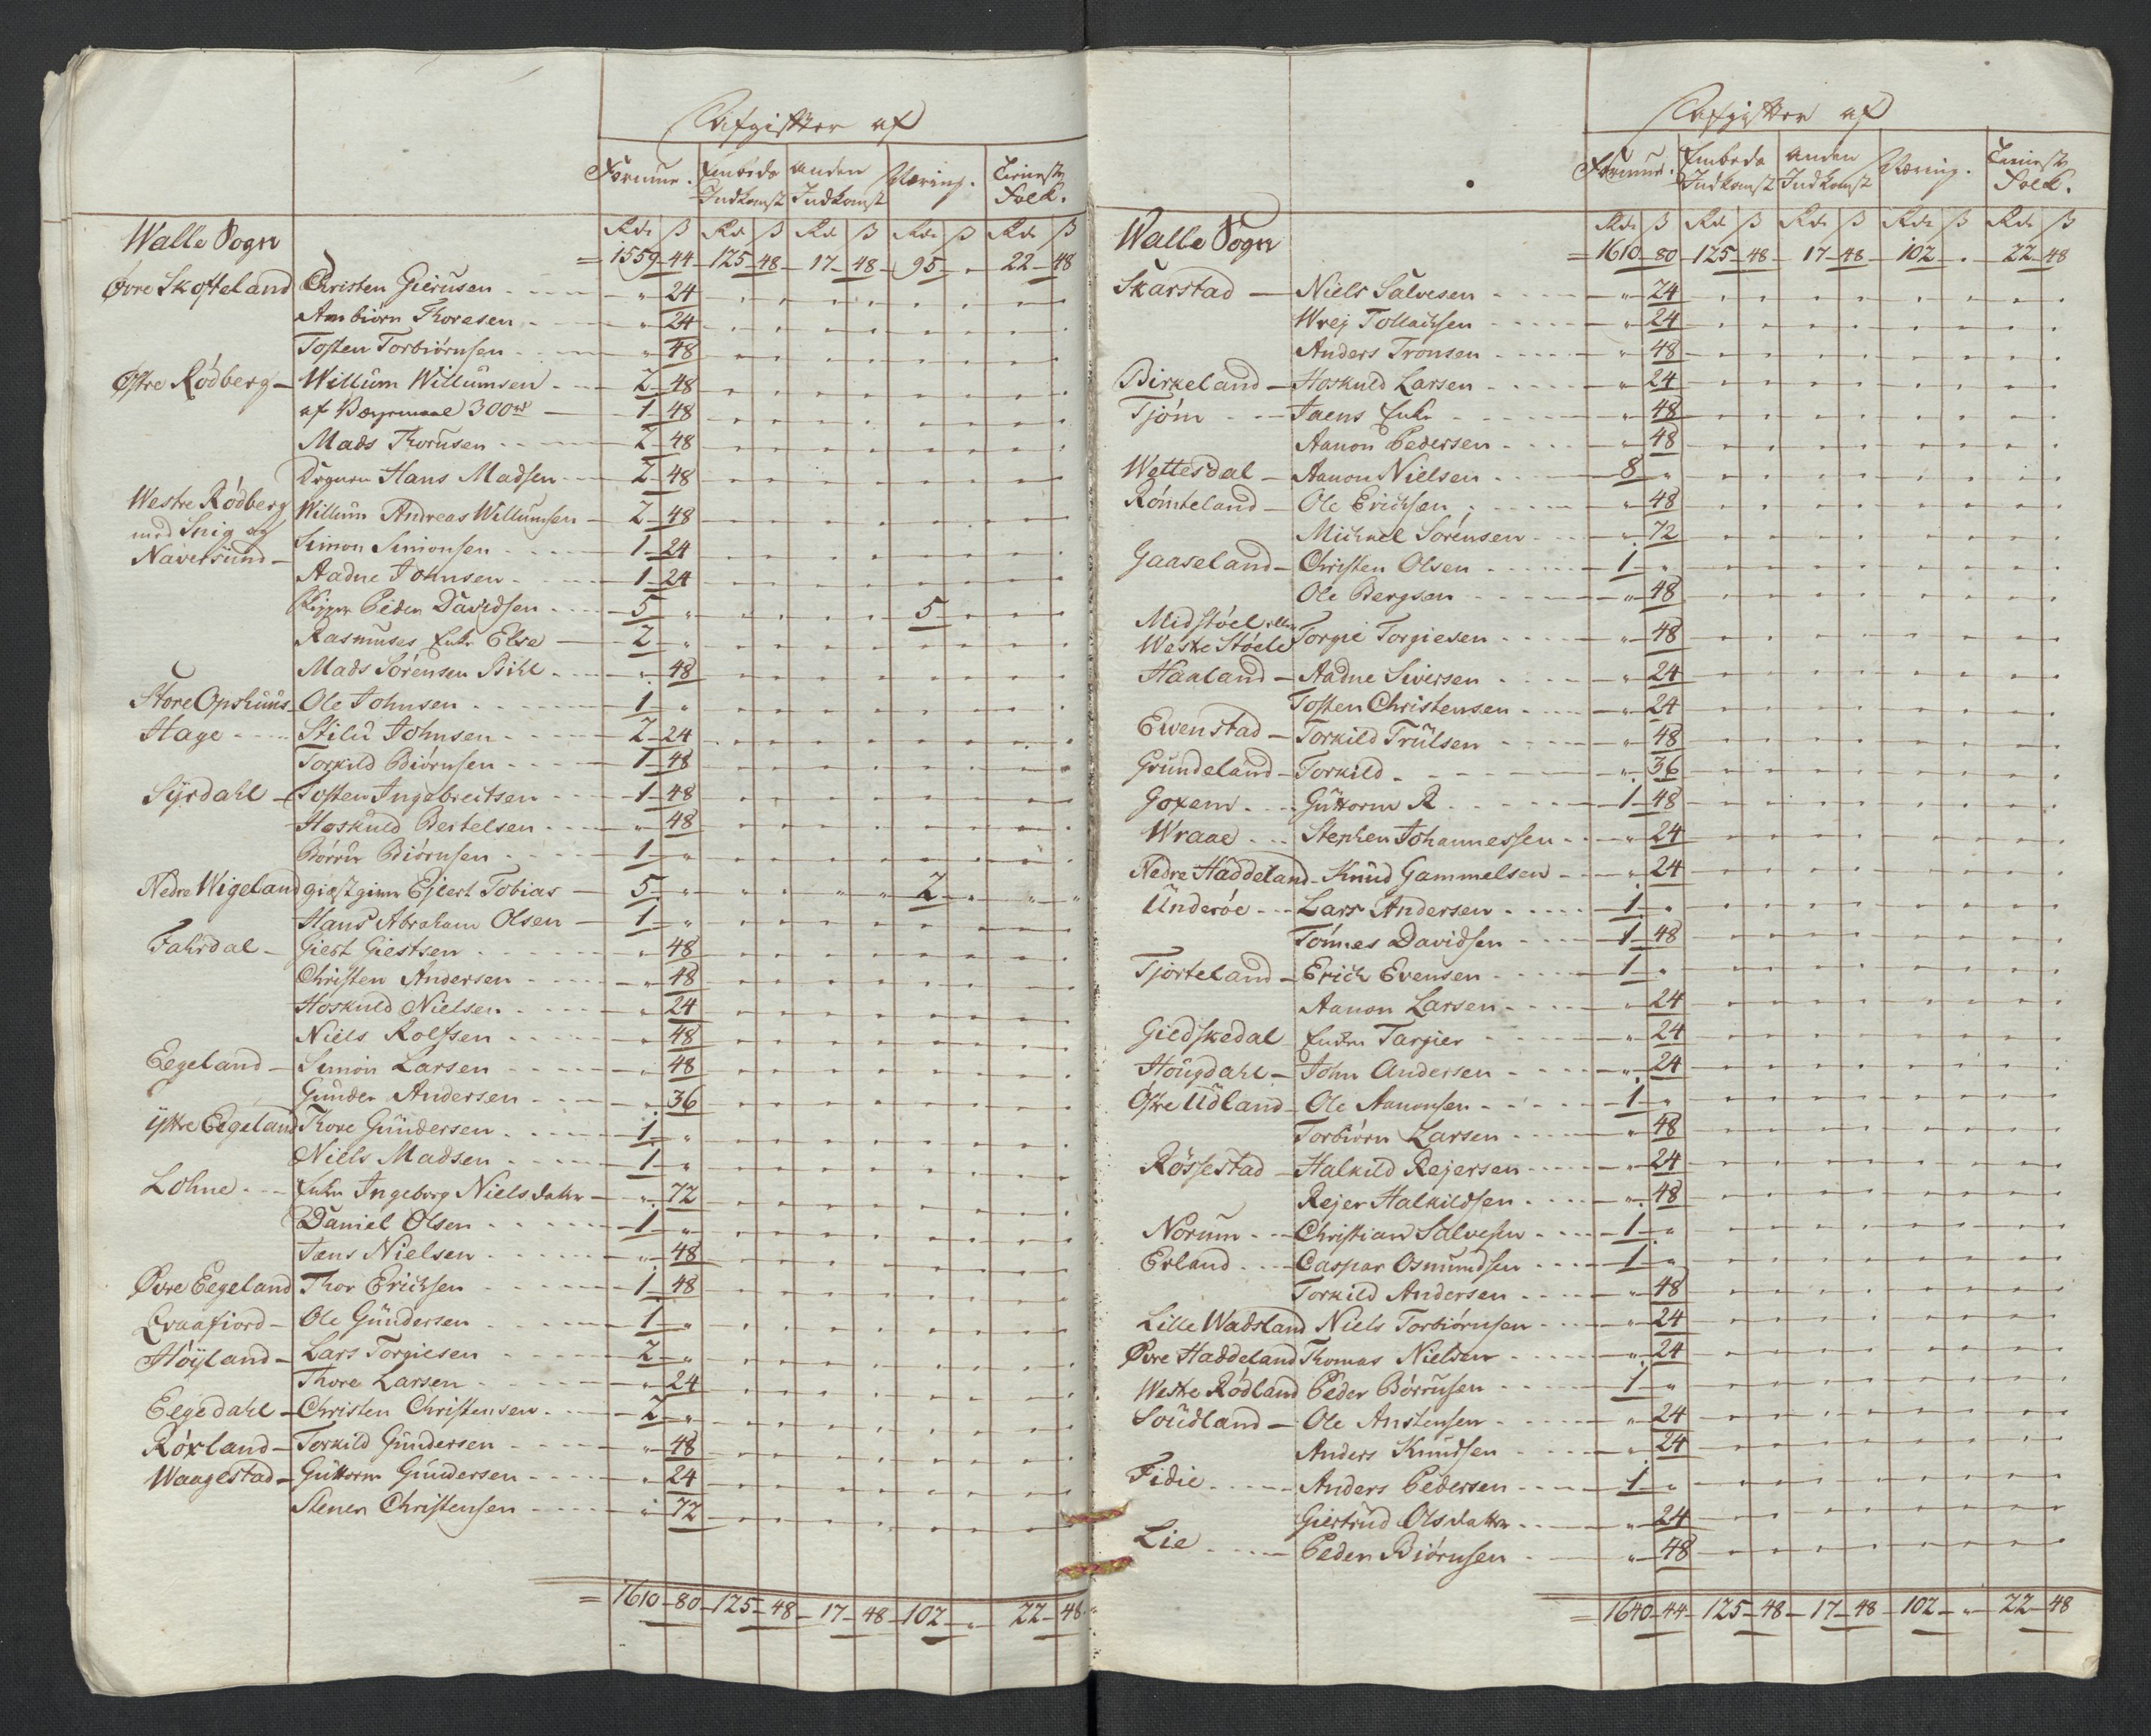 Afgifter af
Formue. Embeds Indkomst Anden Indkomst Næring. Tieniste Folk.
Rdr ß Rdr ß Rdr ß Rdr ß Rdr ß
Walle Sogn = 1559 - 44 - 125 - 48 - 17 - 48 - 95 - " 22 - 48
Øvre Skofteland Christen Gierusen " 24
Ambiørn Thoresen " 24
Tosten Torbiørnsen " 48
Østre Rödberg - Willum Willumsen 2 - 48
af 300 rd 1 - 48
Mads Thorusen 2 - 48
Hans Madsen 2 - 48
Westre Rödberg Willum Andreas Willumsen 2 - 48
med Snig og Simon Simonsen 1 - 24
Naversund - Aadne Johnsen 1 - 24
Skipper Peder Davidsen 5 - " 5
Rasmuses Enke Else 2 - "
Mads Sörensen Bihl " 48
Store Opshuus Ole Johnsen 1 - "
Hage Stilu Johnsen 2 - 24
Torkild Biörnsen 1 - 48
Syrdahl - Tosten Ingebreitsen 1 - 48
Hoskuld Bertelsen " 48
Börru Biörnsen 1 - "
Nedre Wigeland giæstgiver Ejlert Tobias 5 - " 2 - "
Hans Abraham Olsen 1 - "
Fahrdal - Giest Giestsen " 48
Christen Andersen " 48
Hoskuld Nielsen " 24
Niels Rolfsen " 48
Eegeland - Simon Larsen " 48
Gunder Andersen " 36
Ijttre Eegeland Thore Gundersen 1 - "
Niels Madsen 1 - "
Lohne Enke Ingeborg Nielsdatter " 72
Daniel Olsen 1 - "
Jens Nielsen " 48
Øvre Eegeland Thor Erichsen 1 - 48
Qvaafiord - Ole Gundersen 1 - "
Höyland - Lars Torgiesen 2 - "
Thore Larsen " 24
Eegedahl - Christen Christensen 2 - "
Röxland - Torkild Gundersen " 48
Waagestad - Guttorm Gundersen " 24
Stener Christensen " 72
= 1610 - 80 - 125 - 48 - 17 - 48 - 102 - " 22 - 48
Afgifter af
Formue. Embeds Indkomst Anden Indkomst Næring. Tieniste Folk.
Rdr ß Rdr ß Rdr ß Rdr ß Rdr ß
Walle Sogn = 1610 - 80 - 125 - 48 - 17 - 48 - 102 - " 22 - 48
Skarstad - Niels Salvesen " 24
Wrej Tollachsen " 24
Anders Tronsen " 48
Birkeland - Hoskuld Larsen " 24
Tjöm Jaens Enke " 48
Aanon Pedersen " 48
Wettesdal - Aanon Nielsen 8 "
Römteland - Ole Erichsen " 48
Michael Sörensen " 72
Gaaseland - Christen Olsen 1 - "
Ole Bergsen " 48
Midstöel eller
Westre Stöele Torgie Torgiesen " 48
Haaland - Aadne Siversen " 24
Tosten Christensen " 24
Ewenstad - Torkild Trulsen " 48
Grundeland - Torkild " 36
Goxem Guttorm R 1 - 48
Wraae Stephen Johannessen " 24
Nedre Haddeland - Knud Gammelsen " 24
Underöe Lars Andersen 1 - "
Tönnes Davidsen 1 - 48
Tjorteland - Erich Evensen 1 - "
Aanon Larsen " 24
Giedskedal Enken Targier " 24
Hougdahl - John Andersen " 24
Østre Udland - Ole Aanonsen 1 - "
Torbiörn Larsen " 48
Rössestad - Halkild Rejersen " 24
Rejer Halkildsen " 48
Norum Christian Salvesen 1 - "
Erland Caspar Osmundsen 1 - "
Torkild Andersen " 48
Lille Wadsland Niels Torbiörnsen " 24
Øvre Haddeland Thomas Nielsen " 24
Westre Rödland Peder Börrusen 1 - "
Soudland - Ole Anstensen " 24
Anders Knudsen " 24
Fidie Anders Pedersen 1 - "
Giertrud Olsdatter " 24
Lie Peder Biörnsen " 48
= 1640 - 44 - 125 - 48 - 17 - 48 - 102 - " 22 - 48